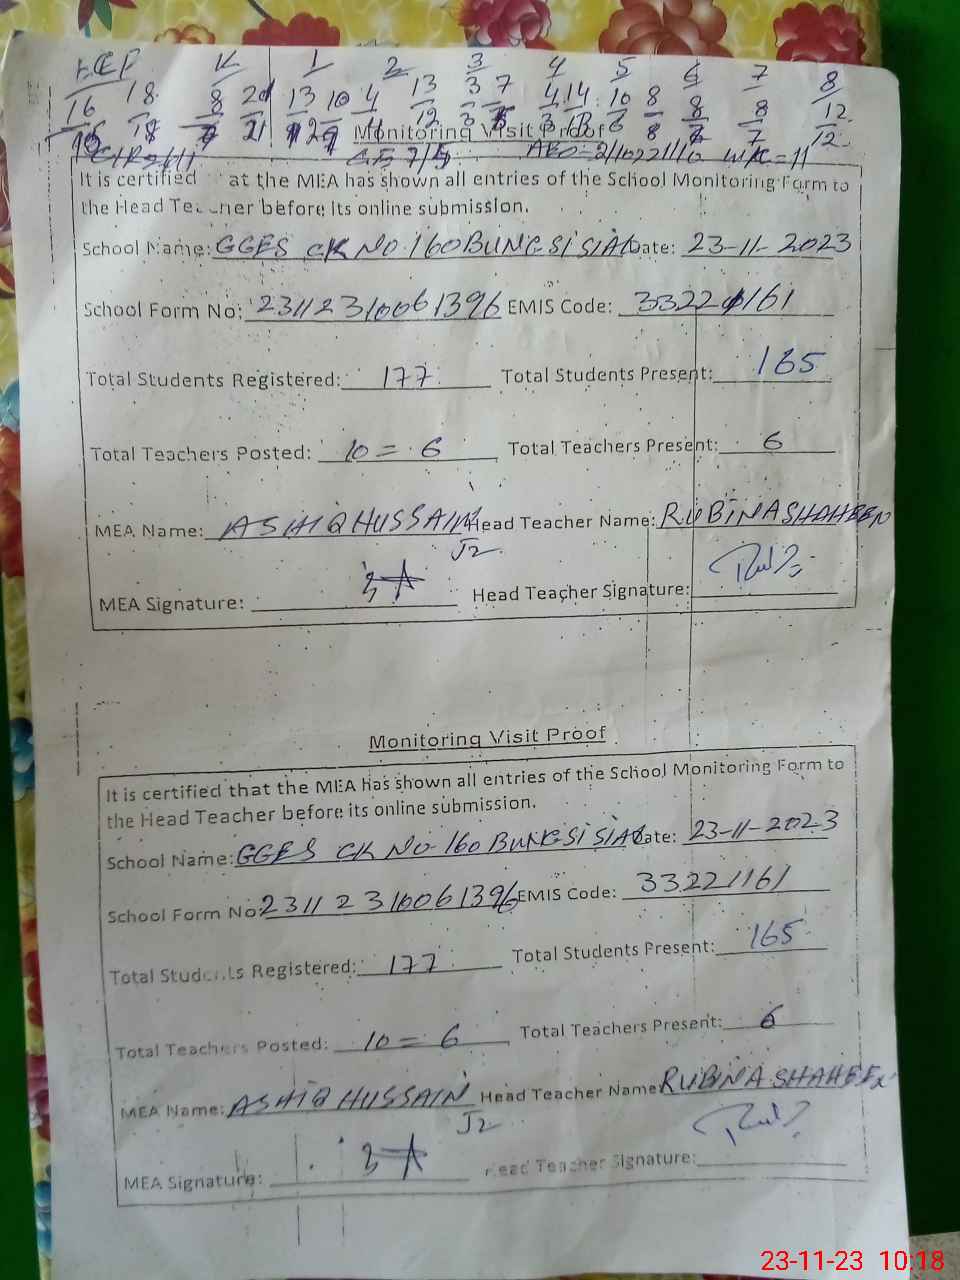 ECE K 1 2 3 4 5 6 7 8
16 18 8 21 13 10 4 13 3 7 4 14 10 8 8 8 12
16 18 21 12 12 8 7 12
Monitoring Visit Proof
W/C=11
It is certified at the MEA has shown all entries of the School Monitoring Form to
the Head Te cher before its online submission.
School Name: GGES CK NO.160 BUNGSI SIAL Date: 23-11-2023
School Form No: 2311231006 1396 EMIS Code: 33221161
Total Students Registered: 177 Total Students Present: 165
Total Teachers Posted: 10 = 6 Total Teachers Present: 6
MEA Name: ASHIQ HUSSAIN Head Teacher Name: RUBINA SHAHEEN
J2
MEA Signature: Head Teacher Signature:
Monitoring Visit Proof
It is certified that the MEA has shown all entries of the School Monitoring Form to
the Head Teacher before its online submission.
School Name: GGES CK NO 160 BUNGSI SIAL Date: 23-11-2023
School Form No 2311231006 1396 EMIS Code: 33221161
Total Students Registered: 177 Total Students Present: 165
Total Teachers Posted: 10 = 6 Total Teachers Present: 6
MEA Name: ASHIQ HUSSAIN Head Teacher Name: RUBINA SHAHEEN
J2
MEA Signature: Head Teacher Signature:
23-11-23 10:18